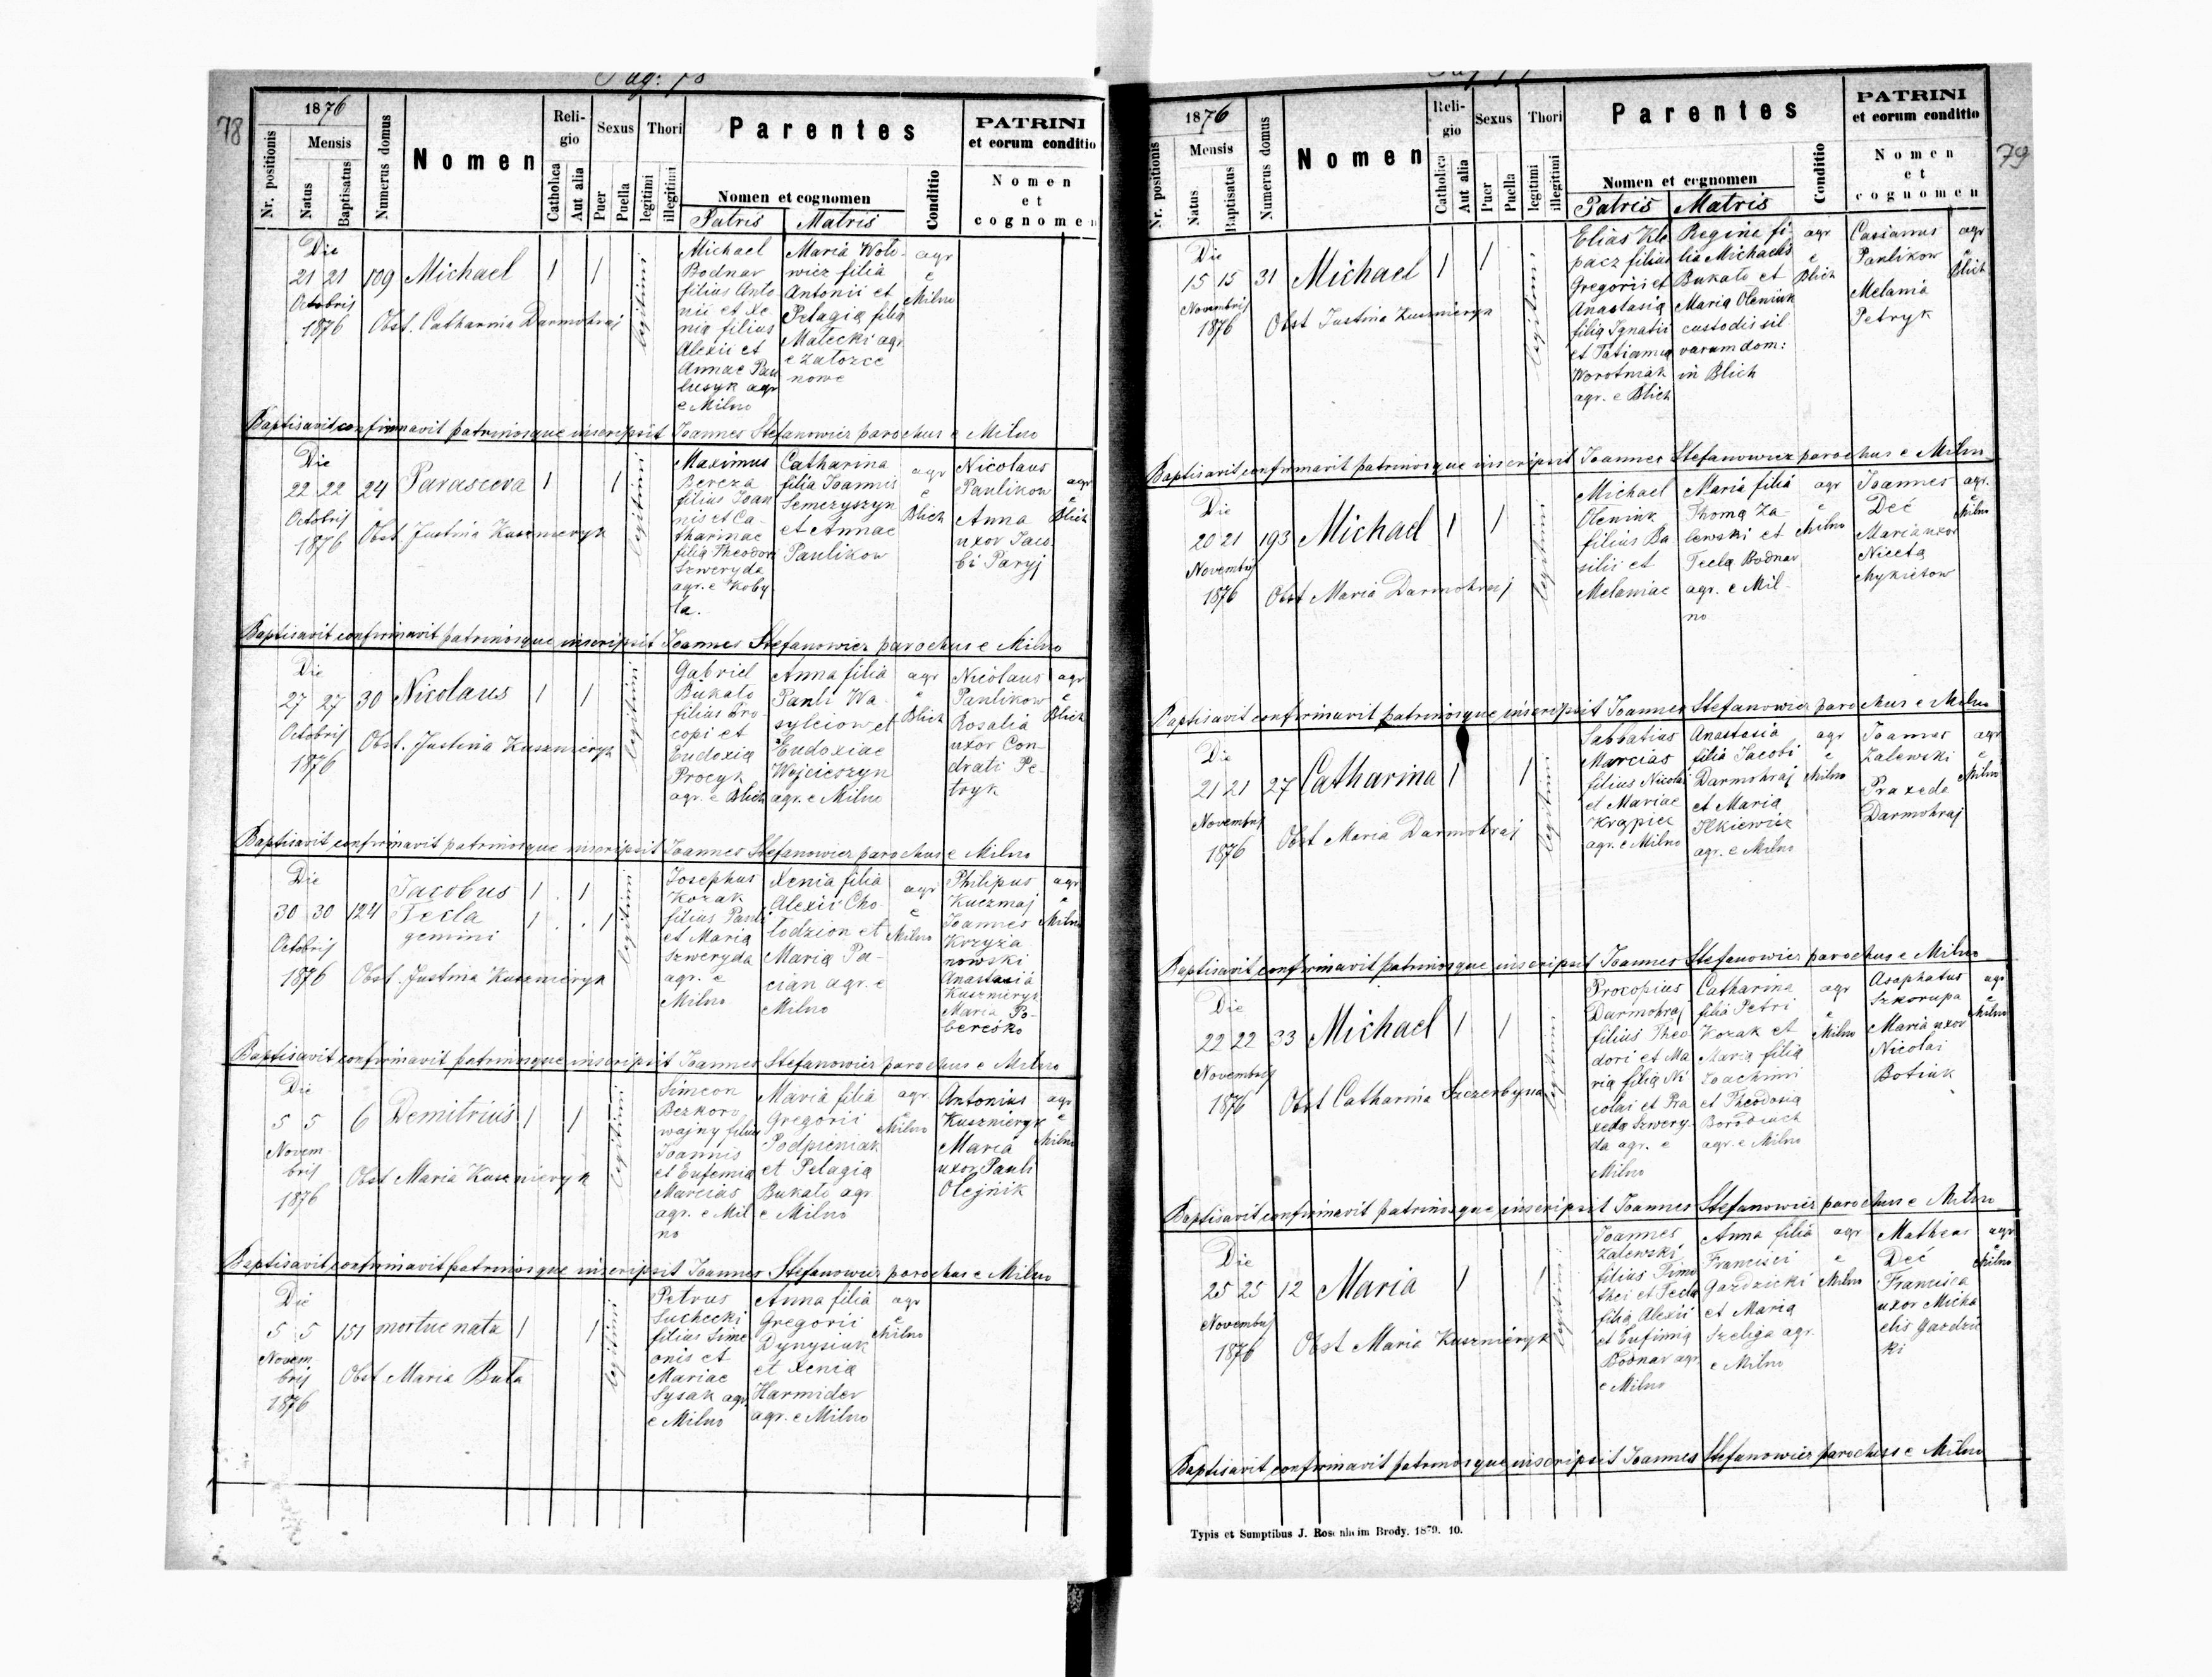 Pag: 78
78
1876
Mensis
Nr. positionis
Natus
Baptisatus
Numerus domus
Nomen
Religio
Catholica
Aut alia
Sexus
Puer
Puella
Thori
legitimi
illegitimi
Parentes
Nomen et cognomen
Patris
Matris
Conditio
PATRINI
et eorum conditio
Nomen
et
cognomen
Die
21 21 109 Michael 1 1
Octobris
1876
Obst. Catharina Darmohraj
legitimi
Michael
Bodnar
filius Anto
nii et Xe
nia filius
Alexii et
Annae Pau
lusyk agr
e Milno
Maria Woło-
wicz filia
Antonii et
Pelagia filia
Małecki agr
e Załozce
nowe
agr
e
Milno
Baptisavit confirmavit patrinosque inscripsit Joannes Stefanowicz parochus e Milno
Die
22 22 24 Parasceva 1 1
Octobris
1876
Obst. Justina Kuszneryk
legitimi
Maximus
Bereza
filius Joan
nis et Ca-
tharinae
filia Theodori
Szweryda
agr. e Koby
la.
Catharina
filia Joannis
Semczyszyn
et Annae
Paulikow
agr
e
Blich
Nicolaus
Paulikow
Anna
uxor Jaco-
bi Paryj
agr
e
Blich
Baptisavit confirmavit patrinosque inscripsit Joannes Stefanowicz parochus e Milno
Die
27 27 30 Nicolaus 1 1
Octobris
1876
Obst. Justina Kuszneryk
legitimi
Gabriel
Bukało
filius Pro-
copi et
Eudoxia
Procyk
agr. e Blich
Anna filia
Pauli Wa-
sylciow et
Eudoxiae
Wojcieszyn
agr. e Milno
agr
e
Blich
Nicolaus
Paulikow
Rosalia
uxor Con-
drati Pe-
tryk
agr
e
Blich
Baptisavit confirmavit patrinosque inscripsit Joannes Stefanowicz parochus e Milno
Die
30 30 124 Jacobus 1 1
Tecla 1 1
gemini
Octobris
1876
Obst. Justina Kuszneryk
legitimi
Josephus
Kozak
filius Pauli
et Maria
Szweryda
agr. e
Milno
Xenia filia
Alexii Cho-
łodzion et
Maria Pa-
cian agr. e
Milno
agr
e
Milno
Philipus
Kuczmaj
Joannes
Krzyża
nowski
Anastasia
Kusznieryk
Maria Po-
bereśko
agr
e
Milno
Baptisavit confirmavit patrinosque inscripsit Joannes Stefanowicz parochus e Milno
Die
5 5 6 Demitrius 1 1
Novem
bris
1876
Obst Maria Kusznieryk
legitimi
Simeon
Bezkoro
wajny filius
Joannis
et Eufemia
Marcias
agr. e Mil
no
Maria filia
Gregorii
Podpieniak
et Pelagia
Bukało agr
e Milno
agr.
e
Milno
Antonius
Kusznieryk
Maria
uxor Pauli
Olejnik
agr
e
Milno
Baptisavit confirmavit patrinosque inscripsit Joannes Stefanowicz parochus e Milno
Die
5 5 151 mortue nata 1 1
Novem
bris
1876
Obst Maria Buła
legitimi
Petrus
Suchecki
filius Sime
onis et
Mariae
Sysak agr
e Milno
Anna filia
Gregorii
Dynysiuk
et Xenia
Harmider
agr. e Milno
agr
e
Milno
79
1876
Mensis
Nr. positionis
Natus
Baptisatus
Numerus domus
Nomen
Religio
Catholica
Aut alia
Sexus
Puer
Puella
Thori
legitimi
illegitimi
Parentes
Nomen et cognomen
Patris
Matris
Conditio
PATRINI
et eorum conditio
Nomen
et
cognomen
Die
15 15 31 Michael 1 1
Novembris
1876
Obst Justina Kusznieryk
legitimi
Elias Kle
pacz filius
Gregorii et
Anastasia
filia Ignatii
et Tatianna
Worotniak
agr. e Blich
Regina fi-
lia Michaelis
Bukało et
Maria Oleniuk
custodis sil-
varum dom:
in Blich
agr
e
Blich
Casianus
Paulikow
Melania
Petryk
agr
e
Blich
Baptisavit confirmavit patrinosque inscripsit Joannes Stefanowicz parochus e Milno
Die
20 21 193 Michael 1 1
Novembris
1876
Obst Maria Darmohraj
legitimi
Michael
Oleniuk
filius Ba
silii et
Melaniae
Maria filia
Thoma Za-
lewski et
Tecla Bodnar
agr. e Mil-
no
agr
e
Milno
Joannes
Deć
Maria uxor
Niceta
Mykietow
agr.
e
Milno
Baptisavit confirmavit patrinosque inscripsit Joannes Stefanowicz parochus e Milno
Die
21 21 27 Catharina 1 1
Novembris
1876
Obst Maria Darmohraj
legitimi
Sabbatius
Marcias
filius Nicolai
et Mariae
Krąpiec
agr. e Milno
Anastasia
filia Jacobi
Darmohraj
et Maria
Ilkiewicz
agr. e Milno
agr
e
Milno
Joannes
Zalewski
Praxeda
Darmohraj
agr
e
Milno
Baptisavit confirmavit patrinosque inscripsit Joannes Stefanowicz parochus e Milno
Die
22 22 33 Michael 1 1
Novembris
1876
Obst Catharina Szczerbyna
legitimi
Procopius
Darmohraj
filius Theo
dori et Ma
ria filia Ni
colai et Pra
xeda Szwery-
da agr. e
Milno
Catharina
filia Petri
Kozak et
Maria filia
Joachimi
et Theodosia
Borodiuch
agr. e Milno
agr
e
Milno
Asaphatus
Szkorupa
Maria uxor
Nicolai
Botiuk
agr
e
Milno
Baptisavit confirmavit patrinosque inscripsit Joannes Stefanowicz parochus e Milno
Die
25 25 12 Maria 1 1
Novembris
1876
Obst Maria Kusznieryk
legitimi
Joannes
Zalewski
filius Timo
thei et Tecla
filia Alexii
et Eufimia
Bodnar agr.
e Milno
Anna filia
Francisci
Gazdzicki
et Maria
Szeliga agr.
e Milno
agr
e
Milno
Matheas
Deć
Francisca
uxor Micha
elis Gazdzic
ki
agr
e
Milno
Baptisavit confirmavit patrinosque inscripsit Joannes Stefanowicz parochus e Milno
Typis et Sumptibus J. Rosenheim Brody. 1879. 10.